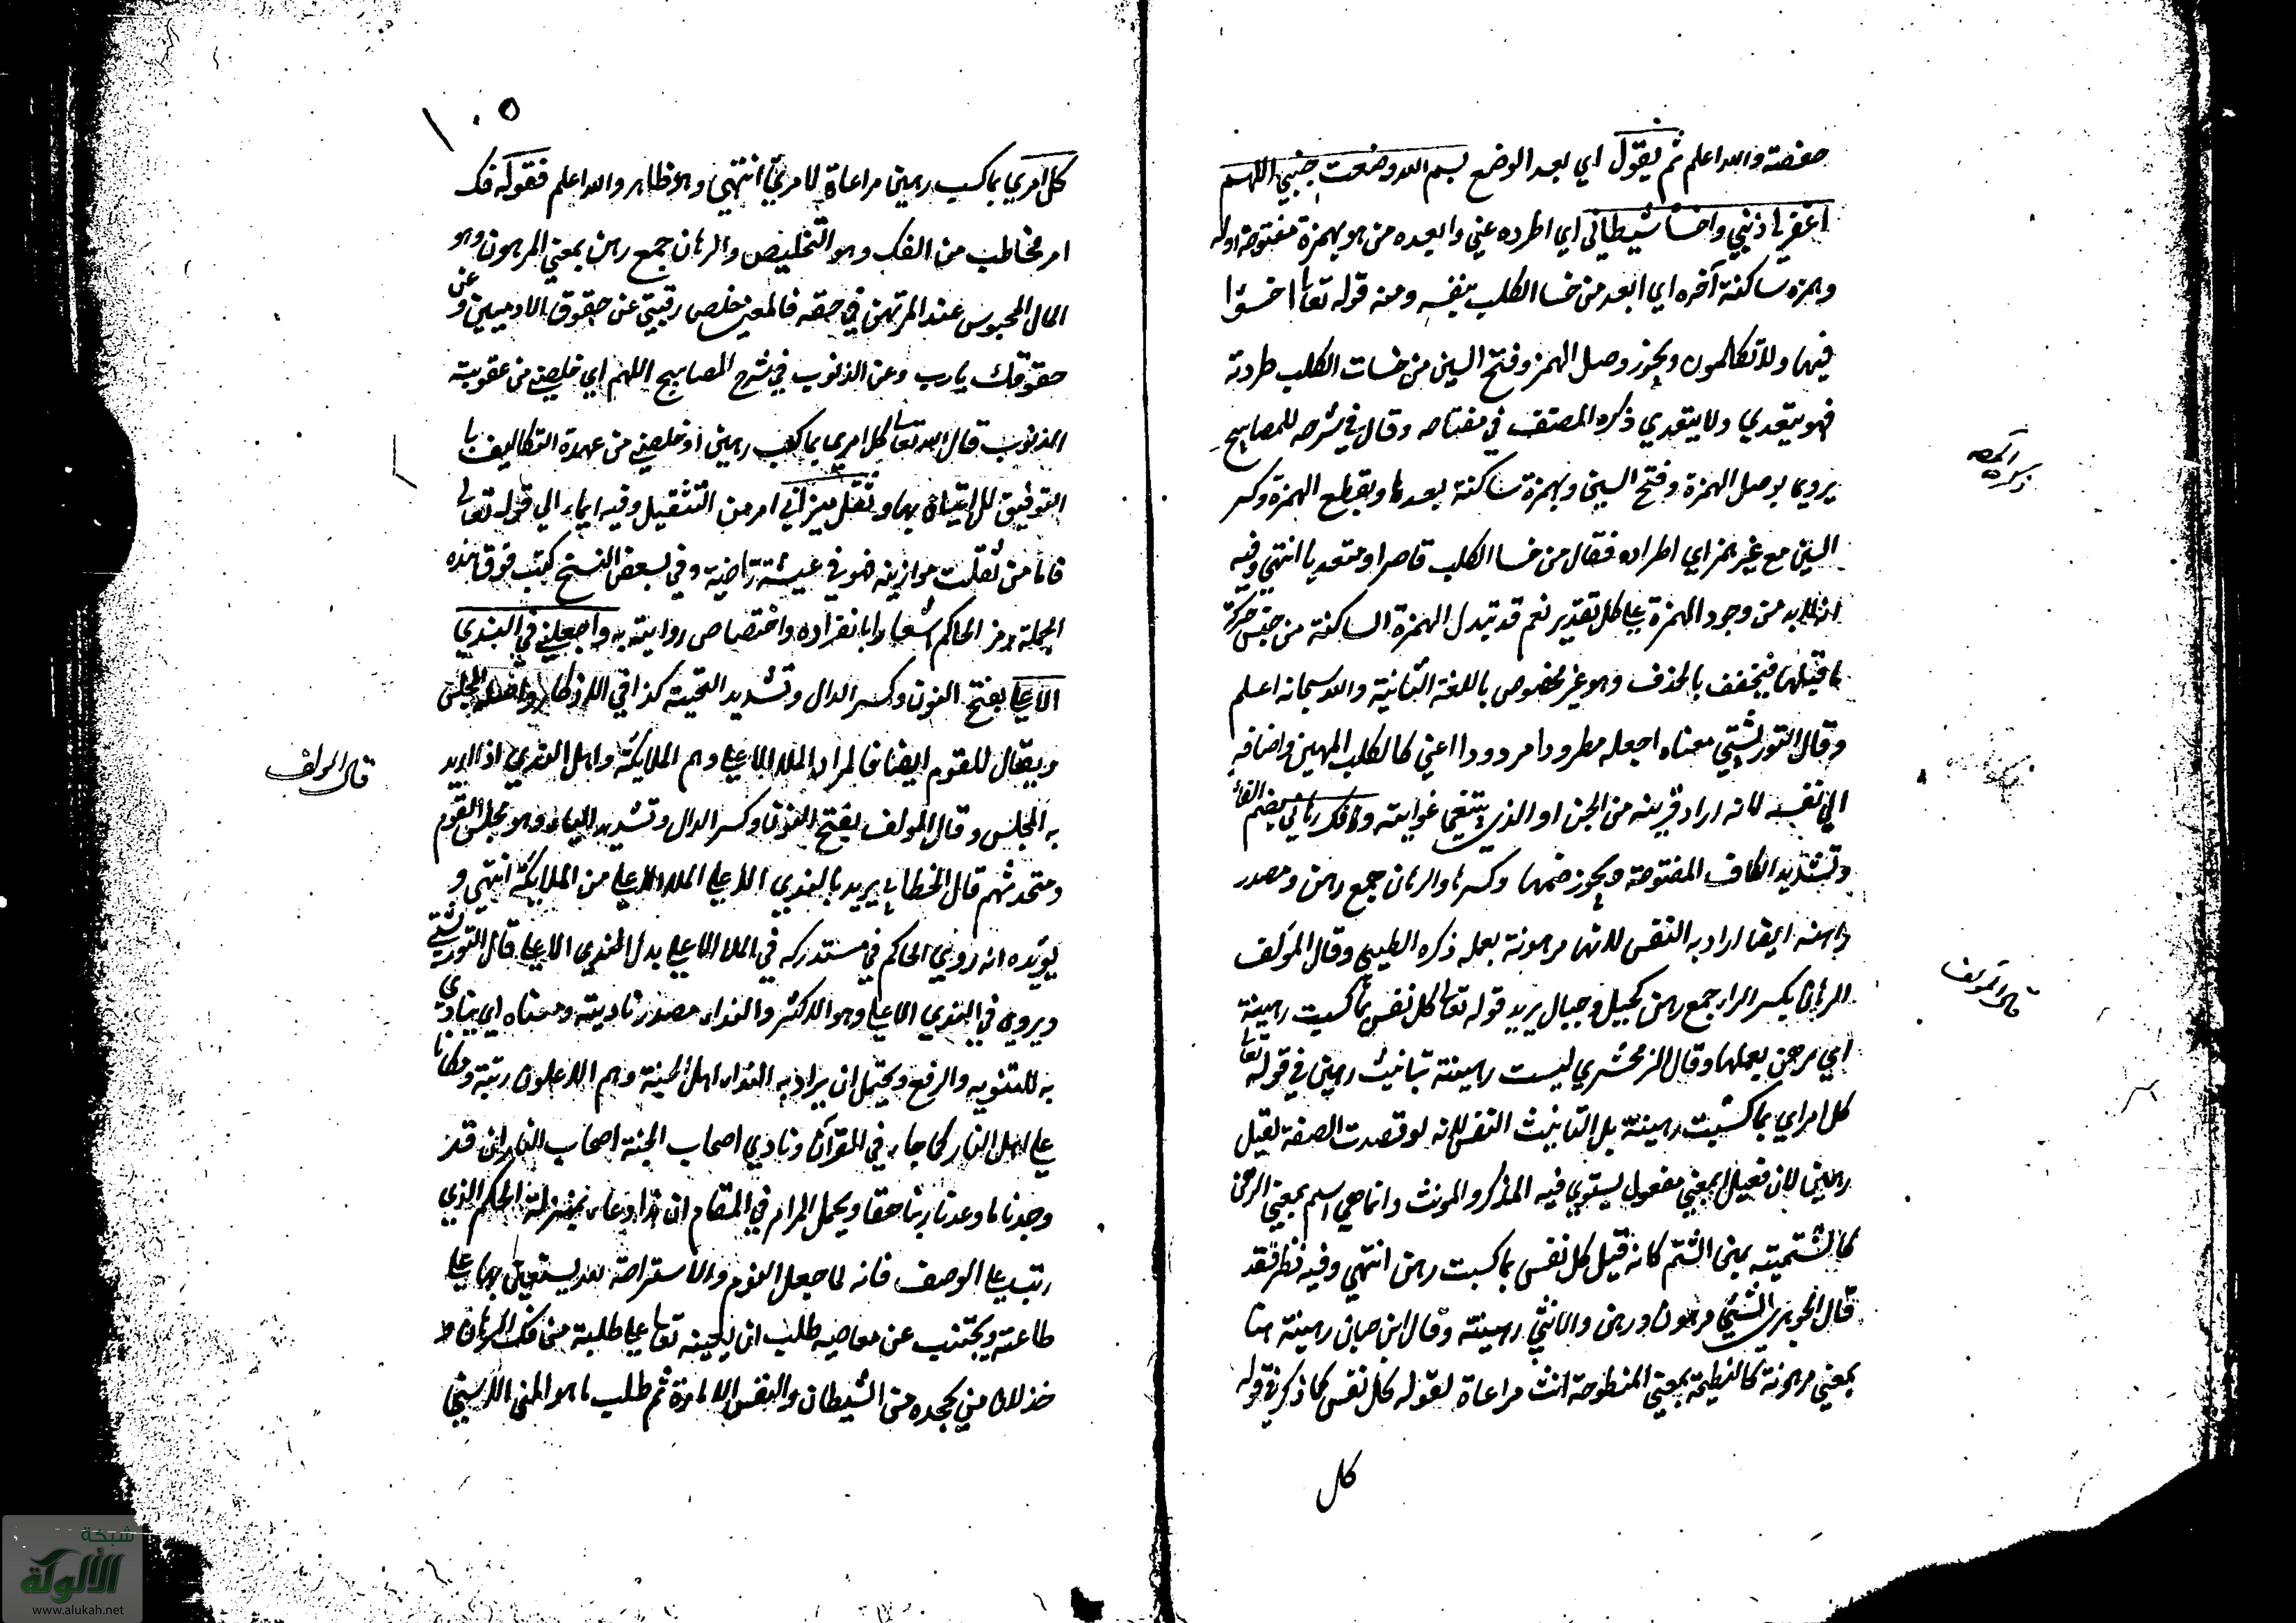 صفصته والله اعلم ثم يقول اي بعد الوضع بسم الله وضعت جنبي اللهم
اغفر لي ذنبي واخسأ شيطاني اي اطرده عني وابعده من هو بهمزة مفتوحة اوله
وهمزه ساكنة آخره اي ابعد من خسا الكلب بنفسه ومنه قوله تعالى اخسؤا
فيها ولا تكلمون ويجوز وصل الهمز وفتح السين من خسات الكلب طردته
فهو يتعدي ولا يتعدي ذكره المصنف في مفتاحه وقال في شرحه للمصابيح
يروينا بوصل الهمزة وفتح السين وبهمزة ساكنة بعدها وبقطع الهمزة وكسر
السين مع غير همز اي اطراده فقال من خسا الكلب قاصرا ومتعديا انتهي وفيه
انه لا بد من وجود الهمزة علي كل تقدير نعم قد تبدل الهمزة الساكنة من جنس حركة
ما قبلها فيخفف بالحذف وهو غير مخصوص باللغة الثانية والله سبحانه اعلم
وقال التوربشتي معناه اجعله مطرودا مردودا عني كالكلب المهين واضافه
الي نفسه لانه اراد قرينه من الجن او الذي يبتغي غوايته وفك رهاني بضم الفاء
وتشديد الكاف المفتوحة ويجوز ضمها وكسرها والرهان جمع رهن ومصدر
راهنه ايضا اراد به النفس لانها مرهونة بعمله ذكره الطيبي وقال المؤلف
الرهان بكسر الراء جمع رهن كحبل وحبال يريد قوله تعالى كل نفس بما كسبت رهينة
اي مرهن بعملها وقال الزمخشري ليست رهينة بتانيث رهين في قوله تعالى
كل امراي بما كسبت رهينة بل لتانيث النفس لانه لو قصدت الصفة لقيل
رهين لان فعيل بمعني مفعول يستوي فيه المذكر والمونث وانما هي اسم بمعني الرهن
كالشتميته بمعنى الشتم كانه قيل كل نفس بما كسبت رهن انتهي وفيه نظر فقد
قال الجوهري الشيئ مرهون ورهن والانثي رهينة وقال ابن حبان رهينة هنا
بمعني مرهونة كالنطيحة بمعني المنطوحة انث مراعاة لقوله كل نفس كما ذكر في قوله
كل
ذكره المص
قال المؤلف
١٠٥
كل امري بما كسب رهين مراعاة لامرئ انتهي وهو ظاهر والله اعلم فقوله فك
امر مخاطب من الفك وهو التخليص والرهان جمع رهن بمعني المرهون وهو
المال المحبوس عند المرتهن في حقه فالمعني خلص رقبتي عن حقوق الادميين وعن
حقوقك يا رب وعن الذنوب في شرح المصابيح اللهم اي خلصني من عقوبة
الذنوب قال الله تعالى كل امري بما كسب رهين او خلصني من عهدة التكاليف با
التوفيق للاتيان بها وثقل ميزاني امر من التثقيل وفيه ايماء الي قوله تعالى
فاما من ثقلت موازينه فهو في عيشة راضية وفي بعض النسخ كتب فوق هذه
الجملة رمز الحاكم اشعارا بانفراده واختصاص روايته به واجعلني في الندي
الاعلي بفتح النون وكسر الدال وتشديد التحتية كذا في الاذكار واصله المجلس
ويقال للقوم ايضا فالمراد الملا الاعلي وهم الملايكة واهل الندي اذا اريد
به المجلس وقال المؤلف بفتح النون وكسر الدال وتشديد الياء وهو مجلس القوم
ومتحدثهم قال الخطابي يريد بالندي الاعلي الملا الاعلي من الملايكة انتهي و
يؤيده انه روي الحاكم في مستدركه في الملا الاعلي بدل الندي الاعلي قال التوربشتي
ويروي في الندي الاعلي وهو الاكثر والنداء مصدر ناديته ومعناه اي ينادي
به للتنويه والرفع ويحتمل ان يراد به النداء اهل الجنة وهم الاعلون رتبة ومكانا
علي اهل النار كما جاء في القرآن ونادي اصحاب الجنة اصحاب النار ان قد
وجدنا ما وعدنا ربنا حقا ويحمل المرام في المقام ان هذا دعاء بمنزلة الحكم الذي
رتب علي الوصف فانه لما جعل النوم والاستراحة لله يستعين بها علي
طاعته ويجتنب عن معاصيه طلب ان يعينه تعالى علي طلبته من فك الرهان و
خذلان من يحجده من الشيطان والنفس الامارة ثم طلب ما هو المنى الاسني
قال المولف
شبكة
الألوكة
www.alukah.net